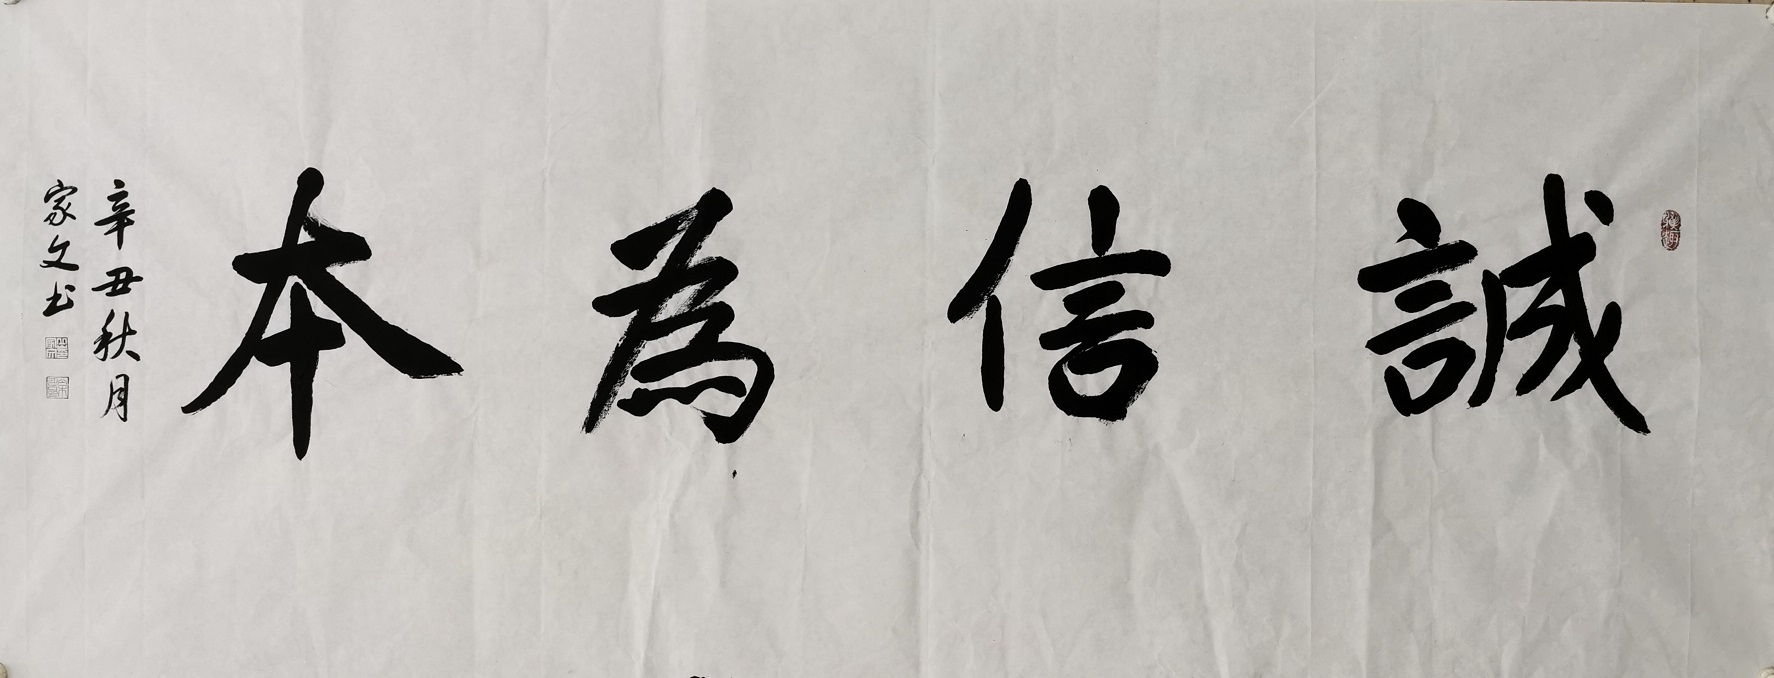 誠信為本
辛丑秋月
家文书